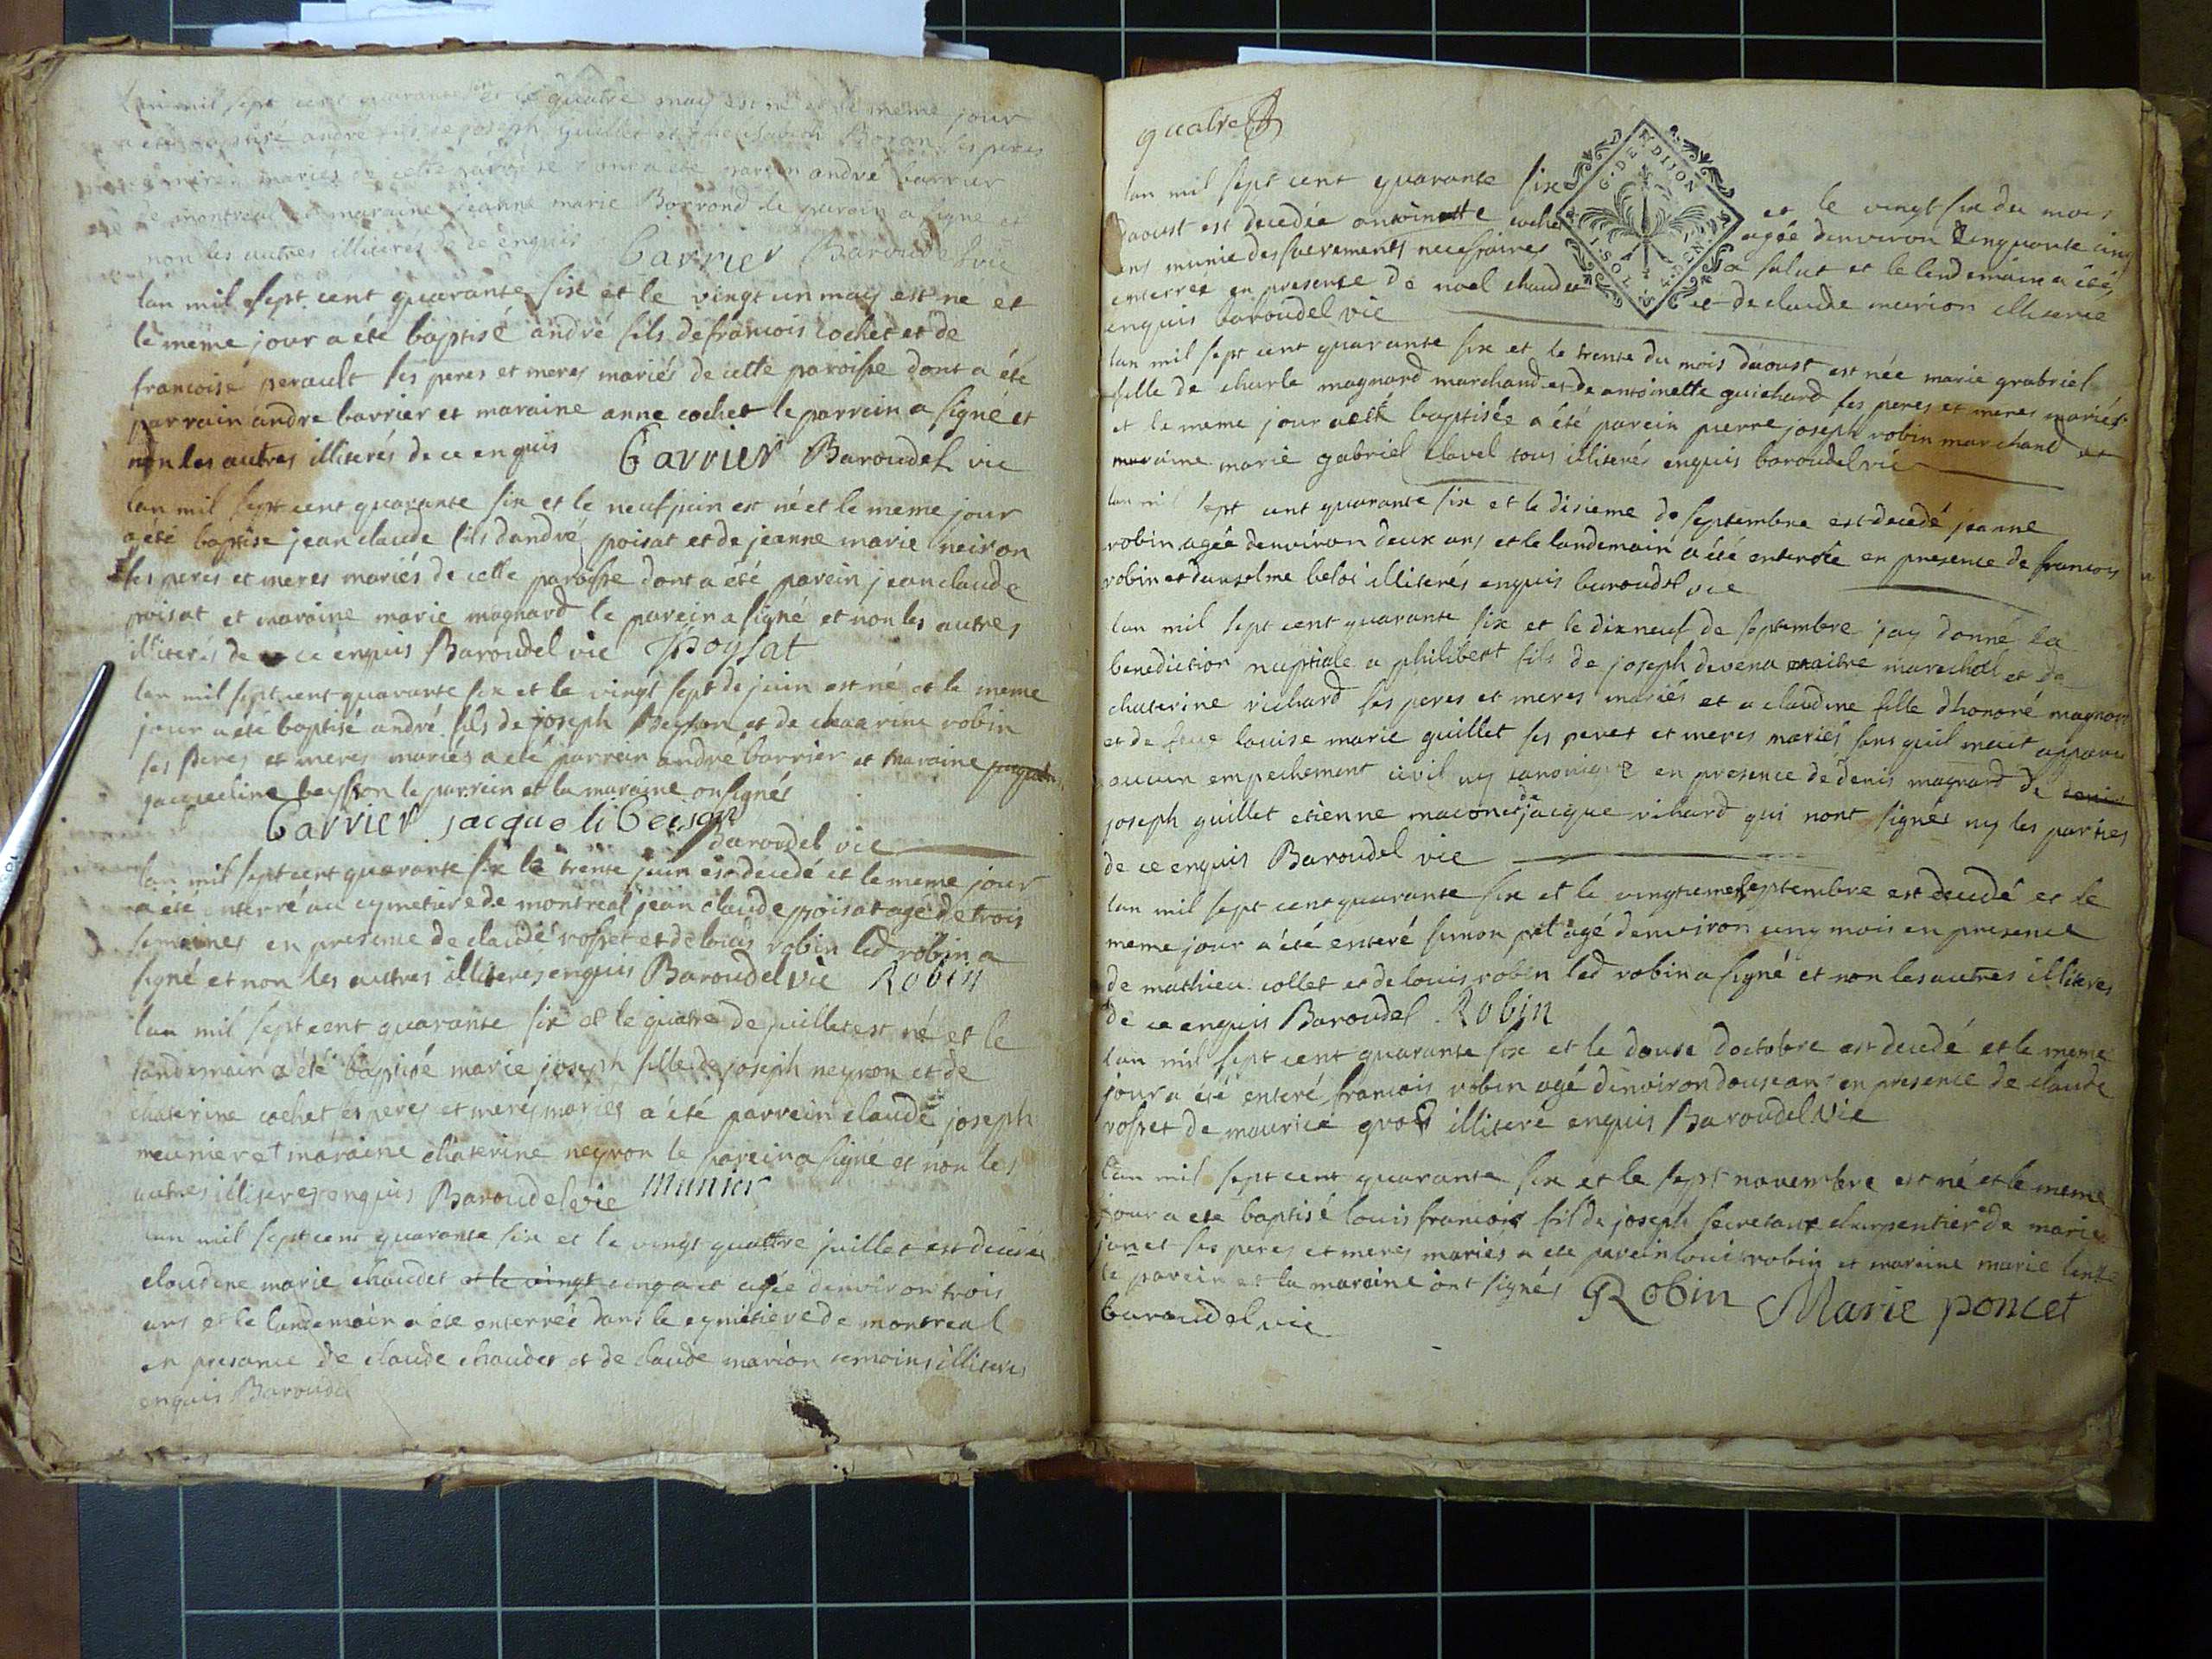 lan mil sept cent quarante six et le quatre may est né et le meme jour
a été baptisé andré fils de joseph guillet et Bozon ses peres
et meres mariés de cette paroisse dont a été parain andré barrier
de montreal et maraine jeanne marie Borrond le parain a signé et
non les autres illiterés de ce enquis Barrier Baroudel vic
lan mil sept cent quarante six et le vingt un may est né et
le meme jour a été baptisé andré fils de francois cochet et de
francoise perault ses peres et meres mariés de cette paroisse dont a été
parrain andre barrier et maraine anne cochet le parrain a signé et
non les autres illiterés de ce enquis Barrier Baroudel vic
lan mil sept cent quarante six et le neuf juin est né et le meme jour
a été baptise jean claude fils dandré poisat et de jeanne marie neiron
ses peres et meres mariés de cette paroisse dont a été parein jean claude
poisat et maraine marie magnard le parein a signé et non les autres
illiterés de ce enquis Baroudel vic Poysat
lan mil sept cent quarante six et le vingt sept de juin est né et le meme
jour a été baptisé andré fils de joseph Beysson et de chaterine robin
ses peres et meres mariés a été parrain andré barrier et maraine
jacqueline beysson le parrein et la maraine on signés
Barrier jacqueli Beison
Baroudel vic
lan mil sept cent quarante six le trente juin est decedé et le meme jour
a été enterré au cymetiere de montreal jean claude poisat agé de trois
semaines en presence de claude rosset et de louis robin led robin a
signé et non les autres illiteres enquis Baroudel vic Robin
lan mil sept cent quarante six et le quatre de juillet est né et le
landemain a été baptisé marie joseph fille de joseph neyron et de
chaterine cochet ses peres et meres mariés a été parrein claude joseph
meunier et maraine chaterine neyron le parein a signé et non les
autres illiteres enquis Baroudel vic Munier
lan mil sept cent quarante six et le vingt quattre juillet est decedée
claudine marie chaudet et le vingt cinq a et agée denviron trois
ans et le landemain a été enterrée dans le cymetiere de montreal
en presance de claude chaudet et de claude marion temoins illiteres
enquis Baroudel
quatre
lan mil sept cent quarante six et le vingt six du mois
daoust est decedée antoinette cochet agée denviron cinquante cinq
ans munie des sacrements necessaires a salut et le lendemain a été
enterrée en presense de noel chaudet et de claude marion illiterés
enquis baroudel vic
G. DE DIJON
lan mil sept cent quarante six et le trente du mois daoust est née marie grabriel
fille de charle magnard marchand et de antoinette guichard ses peres et meres mariés
et le meme jour a esté baptisée a été parein pierre joseph robin marchand et
maraine marie gabriel clavel tous illiterés enquis baroudel vic
lan mil sept cent quarante six et le disieme de septembre est decedé jeanne
robin agée denviron deux ans et le landemain a été enterrée en presence de francois
robin et danselme beloi illiterés enquis baroudel vic
lan mil sept cent quarante six et le dixneuf de septembre jay donné la
benediction nuptiale a philibert fils de joseph devena maitre marechal et de
chaterine richard ses peres et meres mariés et a claudine fille dhonoré magnard
et de feue louise marie guillet ses peres et meres mariés sans quil mait apparu
aucun empechement civil ny canonique en presence de denis magnard de
joseph guillet etienne macon et de jacque rihard qui nont signés ny les parties
de ce enquis Baroudel vic
lan mil sept cent quarante six et le vingtieme septembre est decedé et le
meme jour a été enteré simon pret agé denviron cinq mois en presence
de mathieu collet et de louis robin led robin a signé et non les autres illiteres
de ce enquis Baroudel Robin
lan mil sept cent quarante six et le douse doctobre est decedé et le meme
jour a été enteré francois robin agé denviron douse ans en presence de claude
rosset de maurice grod illiteré enquis Baroudel vic
lan mil sept cent quarante six et le sept novembre est né et le meme
jour a ete baptisé louis francois fil de joseph secretant charpentier de marie
jonet ses peres et meres mariés a été parein louis robin et maraine marie
le parein et la maraine ont signés Robin Marie poncet
baroudel vic